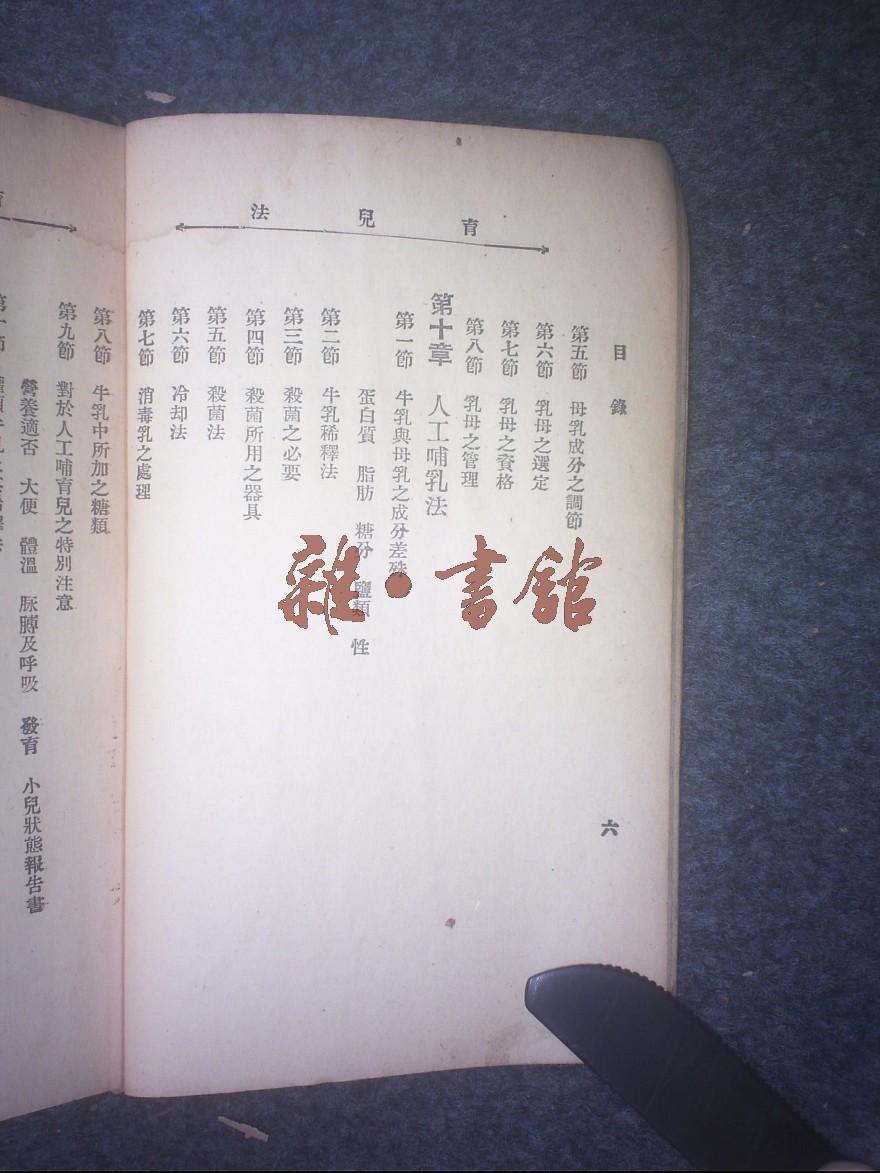 育兒法
目錄
六
第五節 母乳成分之調節
第六節 乳母之選定
第七節 乳母之資格
第八節 乳母之管理
第十章 人工哺乳法
第一節 牛乳與母乳之成分差殊
蛋白質 脂肪 糖分 鹽類 性
第二節 牛乳稀釋法
第三節 殺菌之必要
第四節 殺菌所用之器具
第五節 殺菌法
第六節 冷却法
第七節 消毒乳之處理
第八節 牛乳中所加之糖類
第九節 對於人工哺育兒之特別注意
營養適否 大便 體溫 脉膊及呼吸 發育 小兒狀態報告書
雜·書館